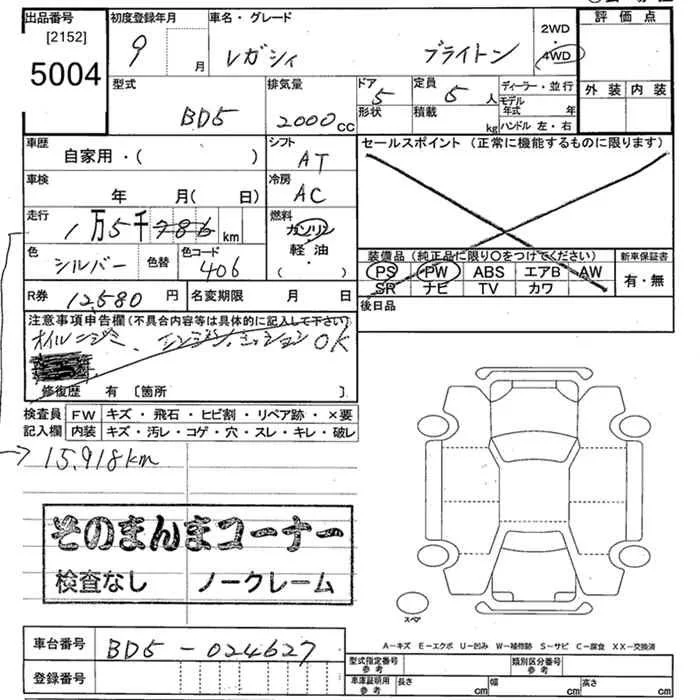 出品番号 初度登録年月 車名・グレード 2WD 評価点
[2152] 9 月 レガシィ ブライトン ・
5004 4WD
型式 排気量 ドア 定員 ディーラー・並行 外装 内装
BD5 2000 CC 5 5 人 モデル年式 年
形状 積載 kg ハンドル 左・右
車歴 シフト セールスポイント (正常に機能するものに限ります)
自家用・( ) AT
車検 冷房
年 月( 日) AC
走行 燃料
1万5千786 km ガソリン
軽油
・( )
色 シルバー 色替 色コード 406
装備品 (純正品に限り○をつけてください) 新車保証書
PS PW ABS エアB AW 有・無
SR ナビ TV カワ
R券 12,580 円 名変期限 月 日 後日品
注意事項申告欄(不具合内容等は具体的に記入して下さい)
オイルニジミ、エンジン、ミッションOK
修復歴 有 [箇所 ]
検査員 FW キズ・飛石・ヒビ割・リペア跡・×要
記入欄 内装 キズ・汚レ・コゲ・穴・スレ・キレ・破レ
15,918km
そのまんまコーナー
検査なし ノークレーム
スペア
A−キズ E−エクボ U−凹み W−補修跡 S−サビ C−腐食 XX−交換済
車台番号 BD5-024627
登録番号
型式指定番号 参考 類別区分番号 参考
車庫証明用 参考 長さ cm 幅 cm 高さ cm